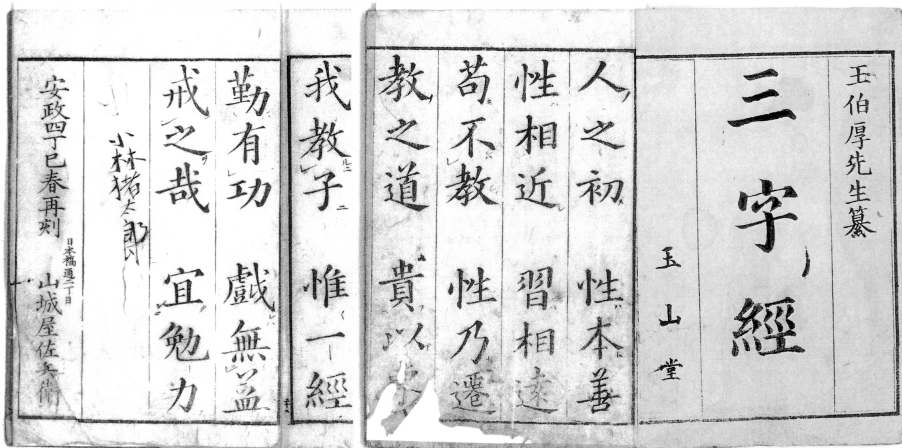 王伯厚先生纂
三字經
玉山堂
人之初 性本善
性相近 習相遠
苟不教 性乃遷
教之道 貴以
我教子 惟一經
勤有功 戲無益
戒之哉 宜勉力
小林猪太郎
安政四丁巳春再刻 日本橋通二丁目 山城屋佐兵衛